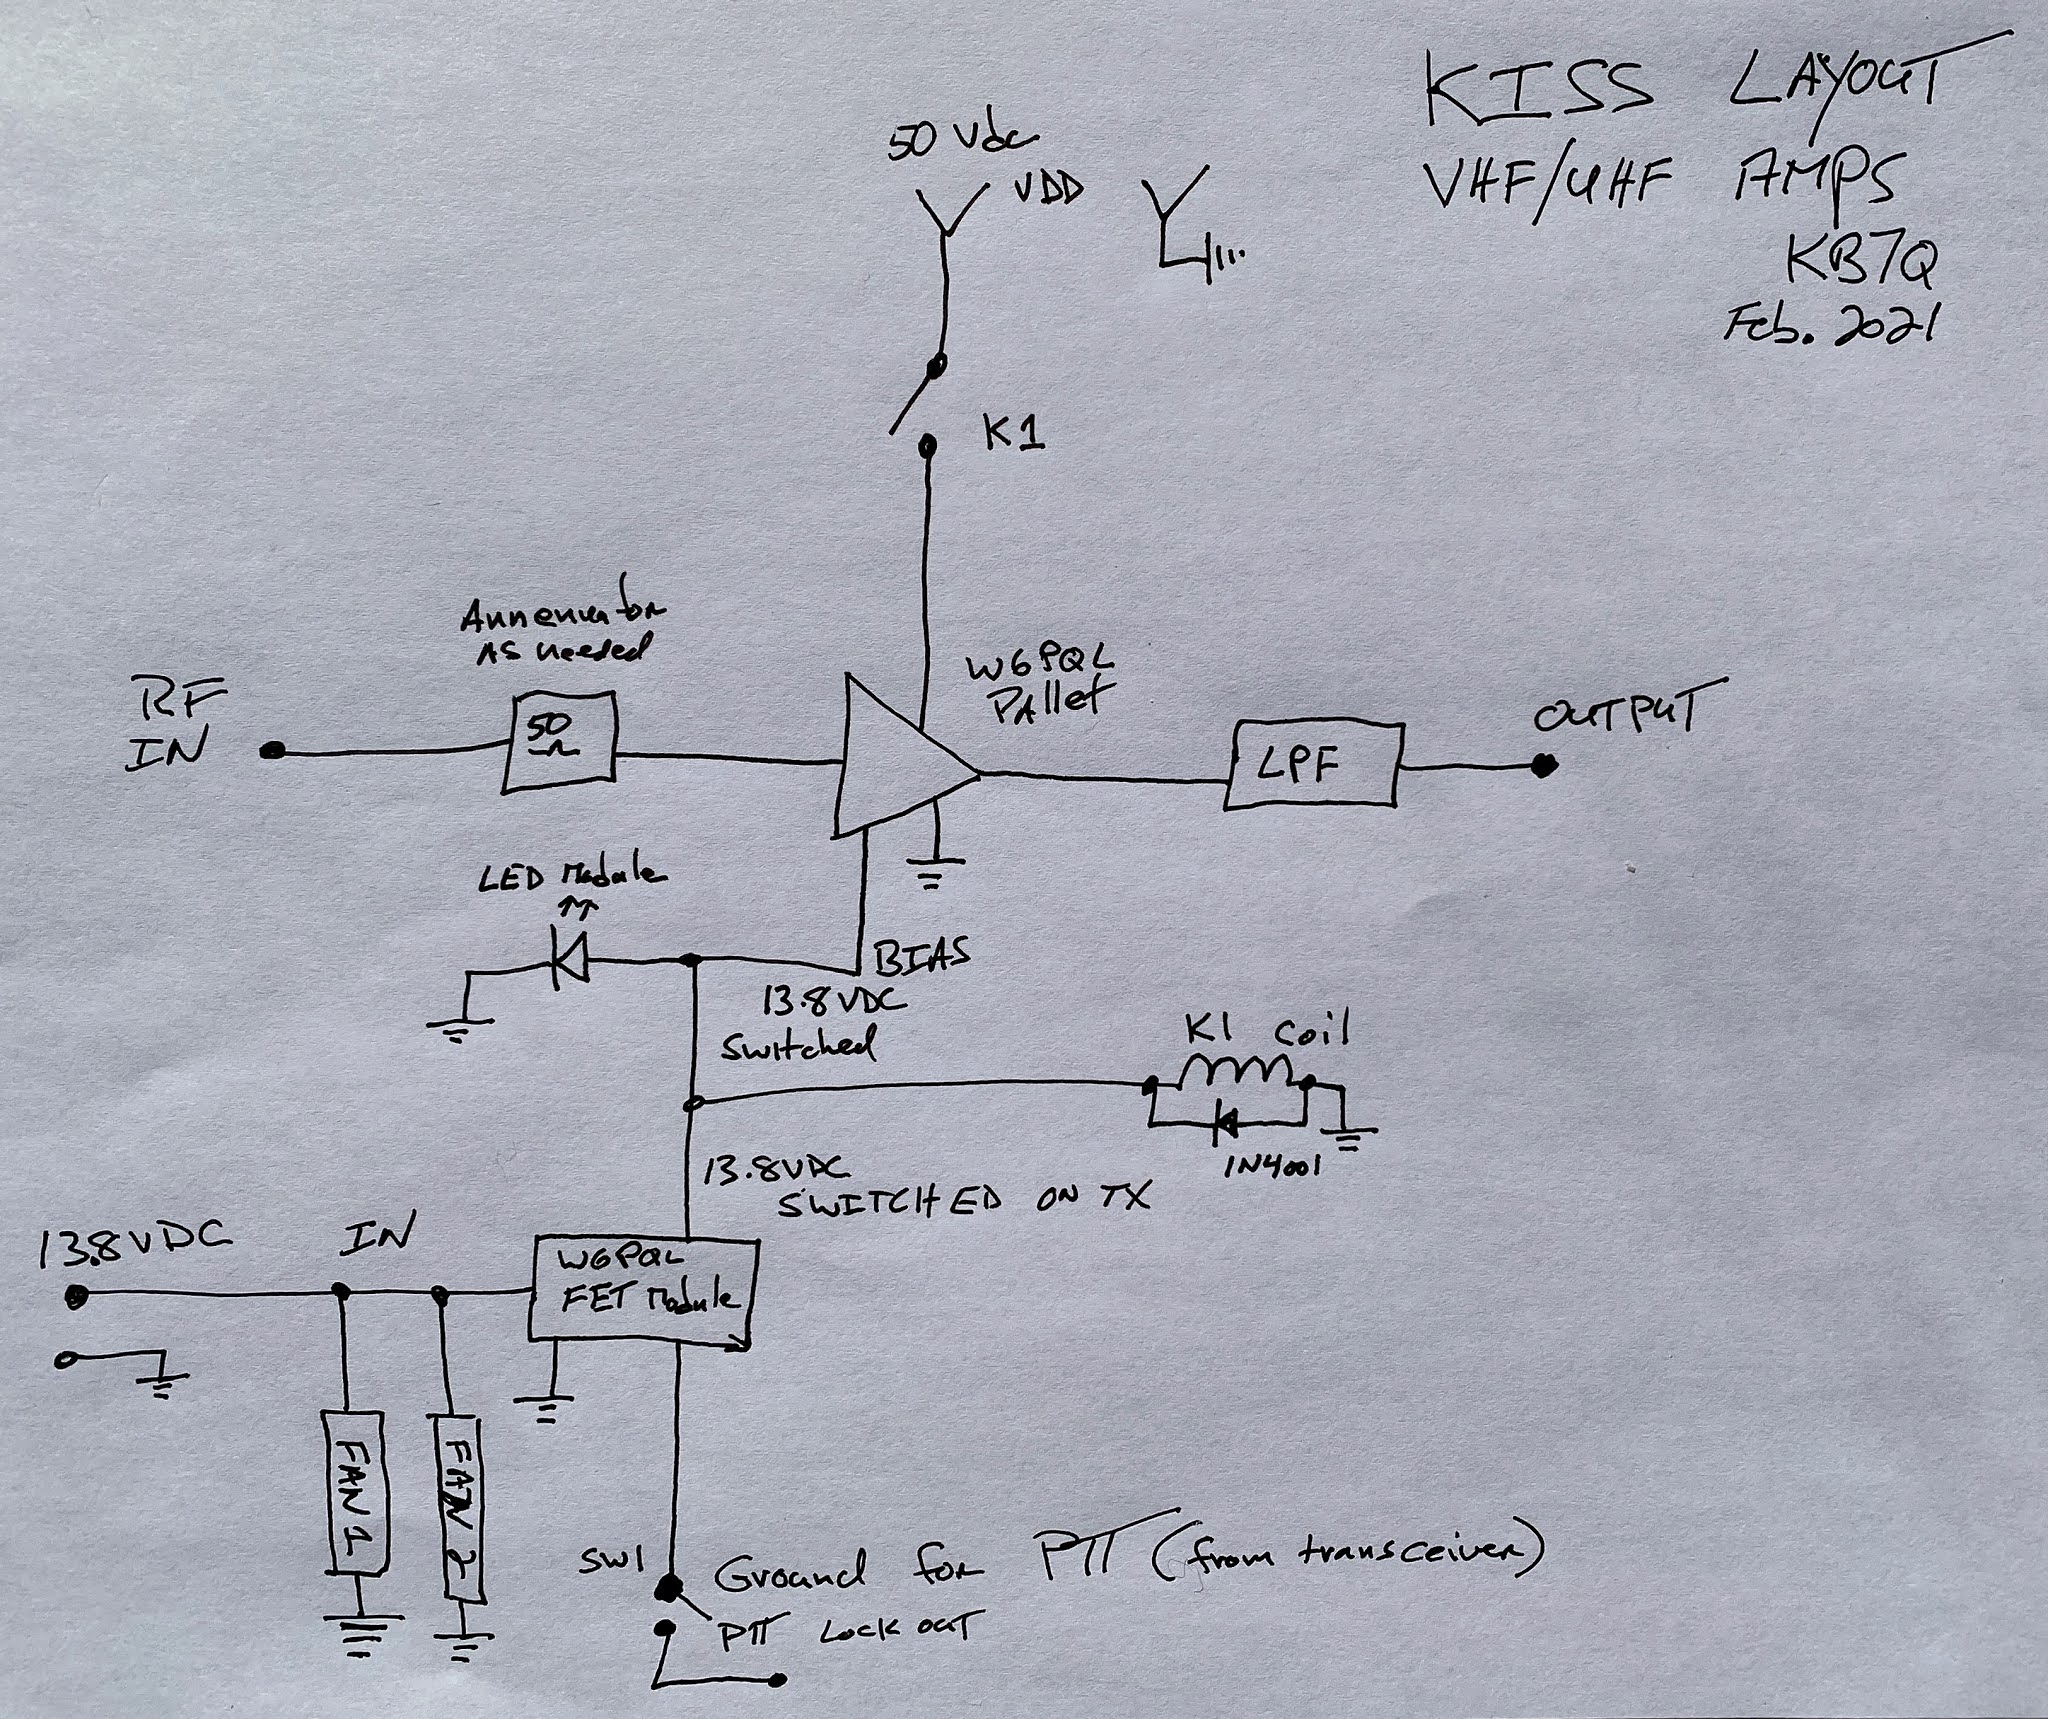 KISS LAYOUT
VHF/UHF AMPS
KB7Q
Feb. 2021
50 Vdc
VDD
K1
Annenuator
AS needed
RF
IN
50
Ω
W6PQL
PAllet
LPF
OUTPUT
LED Module
BIAS
13.8 VDC
Switched
K1 Coil
1N4001
13.8VDC
SWITCHED ON TX
13.8VDC IN
W6PQL
FET Module
FAN 1
FAN 2
SW1
Ground for PTT (from transceiver)
PTT Lock out